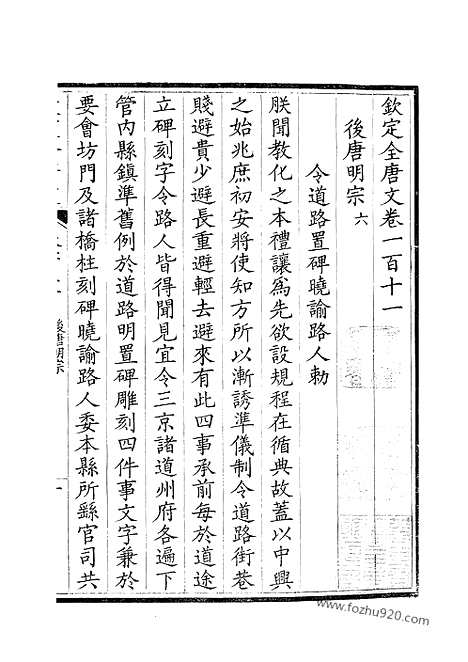 欽定全唐文卷一百十一
後唐明宗 六
令道路置碑曉諭路人勅
朕聞教化之本禮讓為先欲設規程在循典故蓋以中興
之始兆庶初安將使知方所以漸誘準儀制令道路街巷
賤避貴少避長重避輕去避來有此四事承前每於道途
立碑刻字令路人皆得聞見宜令三京諸道州府各遍下
管內縣鎮準舊例於道路明置碑雕刻四件事文字兼於
要會坊門及諸橋柱刻碑曉諭路人委本縣所繇官司共
後唐明宗
一
www.fozhu920.com